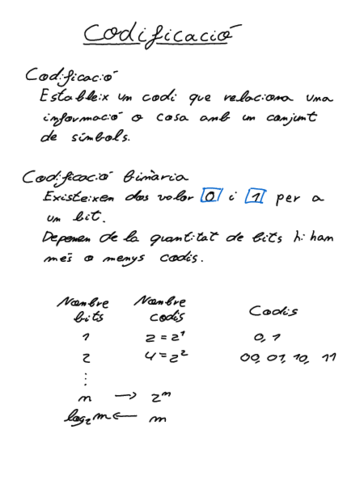 Codificació
Codificació
Estableix un codi que relaciona una
informació o cosa amb un conjunt
de símbols.
Codificació binària
Existeixen dos valor 0 i 1 per a
un bit.
Depenen de la quantitat de bits hi han
més o menys codis.
Nombre bits Nombre codis Codis
1 2 = 2¹ 0, 1
2 4 = 2² 00, 01, 10, 11
⋮
n → 2ⁿ
log₂ n ← n